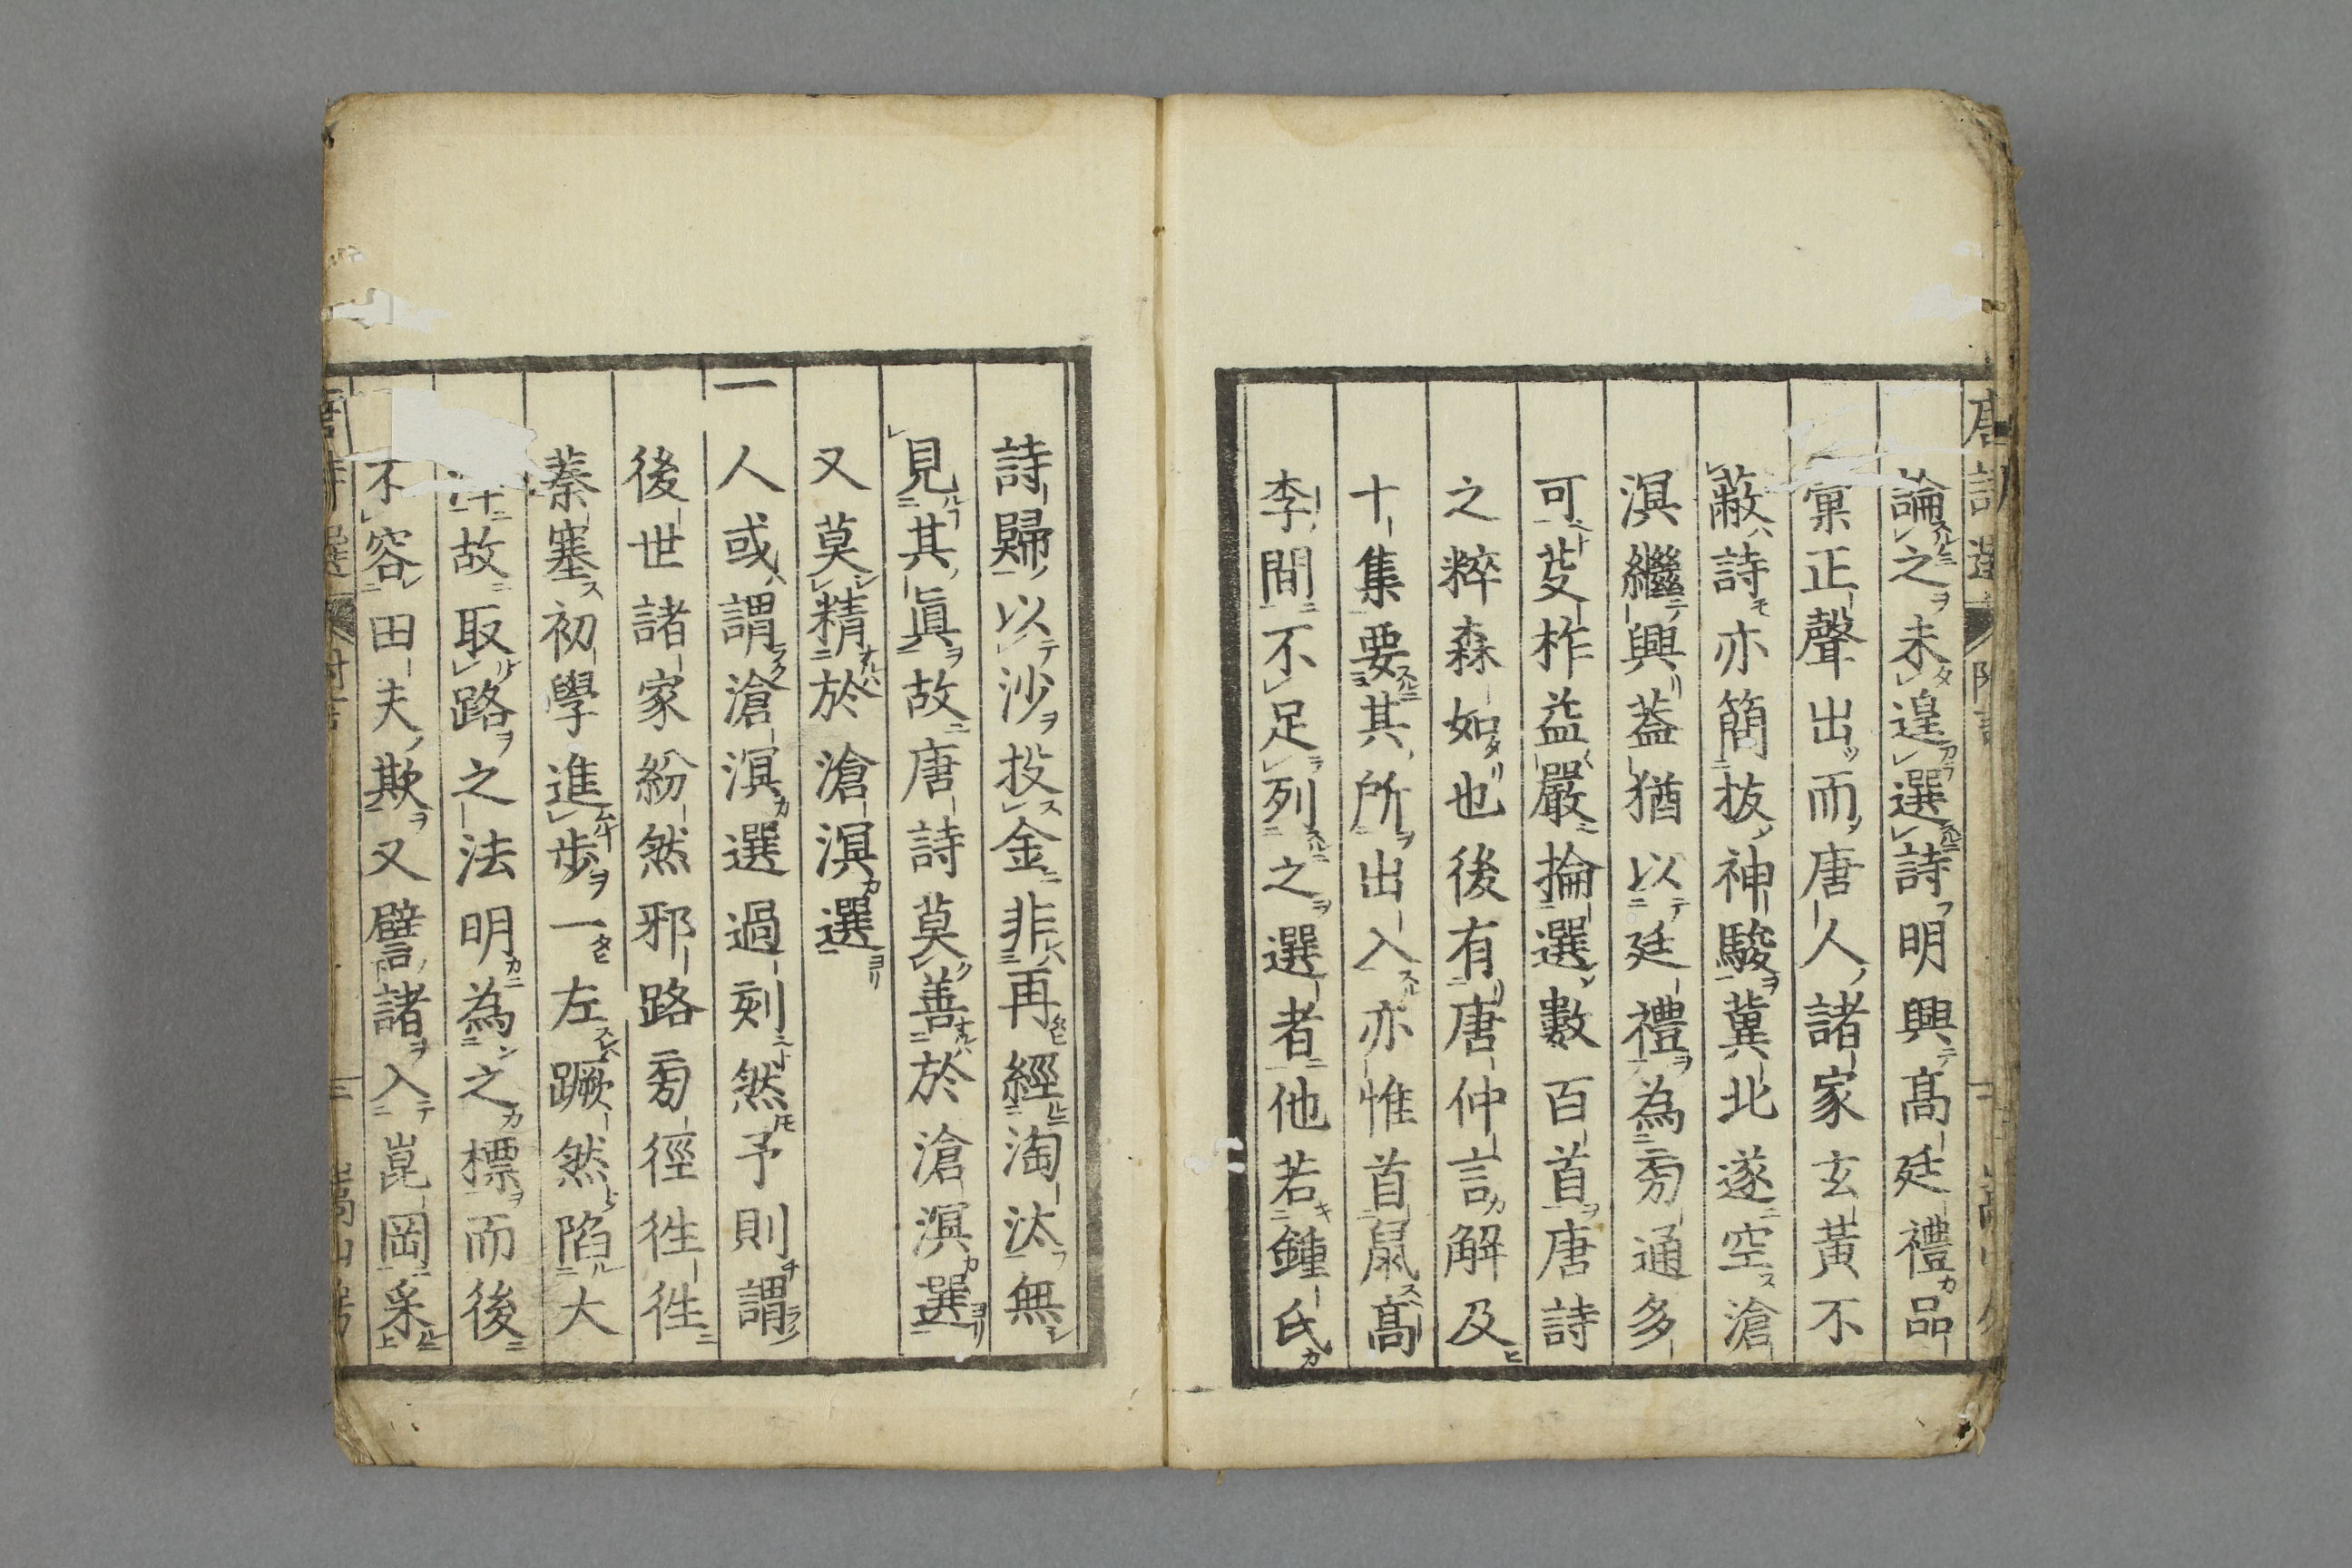 論之未遑選詩明興高廷禮品
彙正聲出而唐人諸家玄黃不
蔽詩亦簡拔神駿冀北遂空滄
溟繼興蓋猶以廷禮為旁通多
可芟柞益嚴掄選數百首唐詩
之粹森如也後有唐仲言解及
十集要其所出入亦惟首鼠高
李間不足列之選者他若鍾氏
詩歸以沙投金非再經淘汰無
見其眞故唐詩莫善於滄溟選
又莫精於滄溟選
一人或謂滄溟選過刻然予則謂
後世諸家紛然邪路旁徑徃徃
蓁塞初學進步一左蹶然陷大
澤故取路之法明為之標而後
不容田夫欺又譬諸入崑岡采